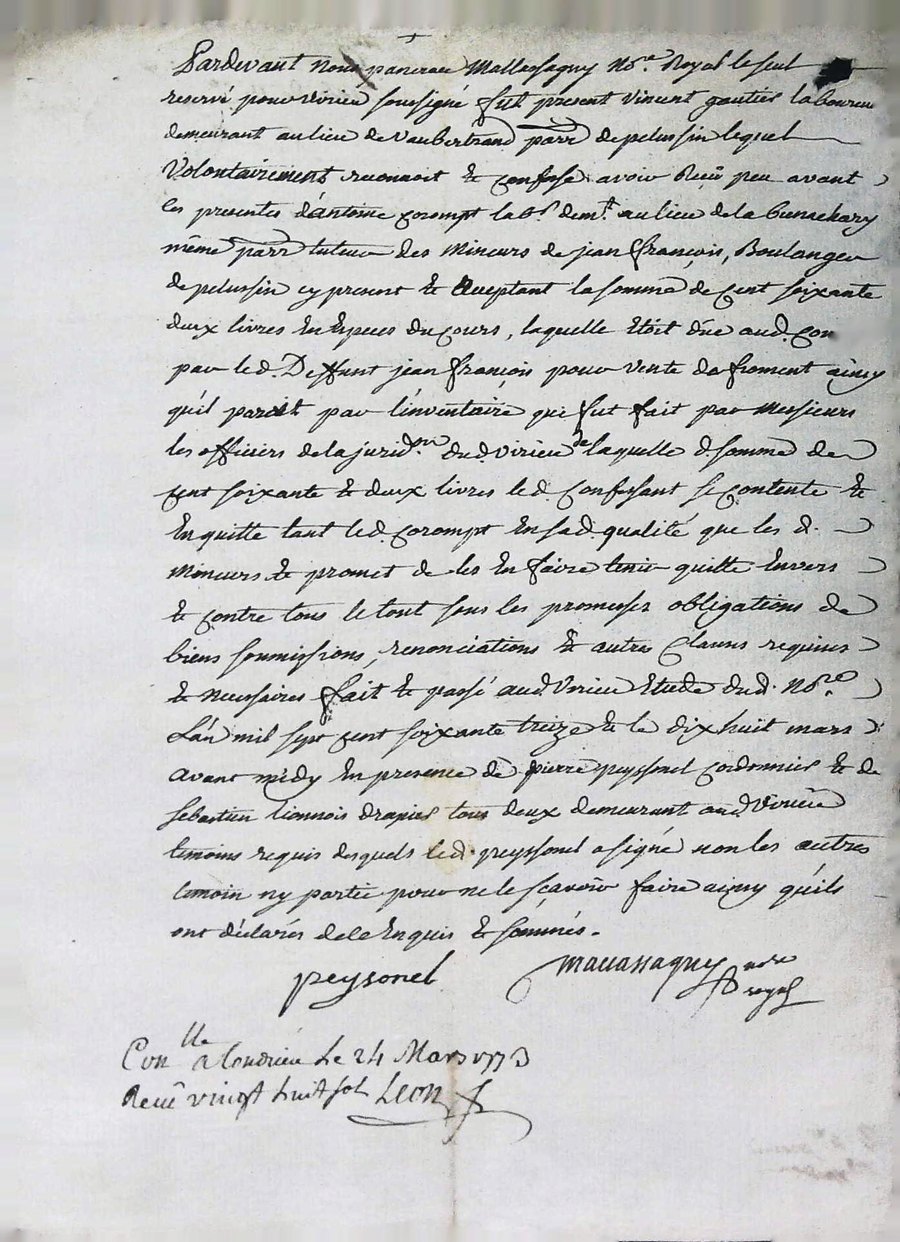 Pardevant Nous pancrace Mallassagny No.re Royal le seul
reservé pour virieu soussigné fut present vincent gautier laboureur
demeurant au lieu de vaubertrand parr de pelussin lequel
Volontairement reconnoit & confese avoir Reçu peu avant
les presentes d'antoine corompt lab.r dem.t au lieu de la
même parr tuteur des Mineurs de jean françois, Boulanger
de pelussin cy present & aceptant la somme de Cent soixante
deux livres En Especes du cours, laquelle Etoit düe aud. Con
par led. Deffunt jean françois pour vente de froment ainsy
qu'il paroit par l'inventaire qui fut fait par Messieurs
les officiers de la jurid.on dud. virieu de laquelle d. somme de
cent soixante & deux livres led. Confessant se contente &
En quitte tant led. corompt En sad. qualité que les d.
Mineurs & promet de les En faire tenir quitte Envers
& contre tous le tout sous les promesses obligations de
biens soumissions, renonciations & autres Clauses requises
& necessaires fait & passé aud. Virieu Etude dud. No.re
L'an mil sept cent soixante treize & le dix huit mars
avant midy En presence de pierre peyssonel Cordonnier & de
sebastien lionnois drapier tous deux demeurant aud. Virieu
temoins requis desquels led. peyssonel a signé non les autres
temoin ny partie pour ne le sçavoir faire ainsy qu'ils
ont déclarés de ce Enquis & sommés.
peysonel
Mallassagny no.re
royal
Con.lle a Condrieu Le 24 Mars 1773
Receu vingt huit sol Leon